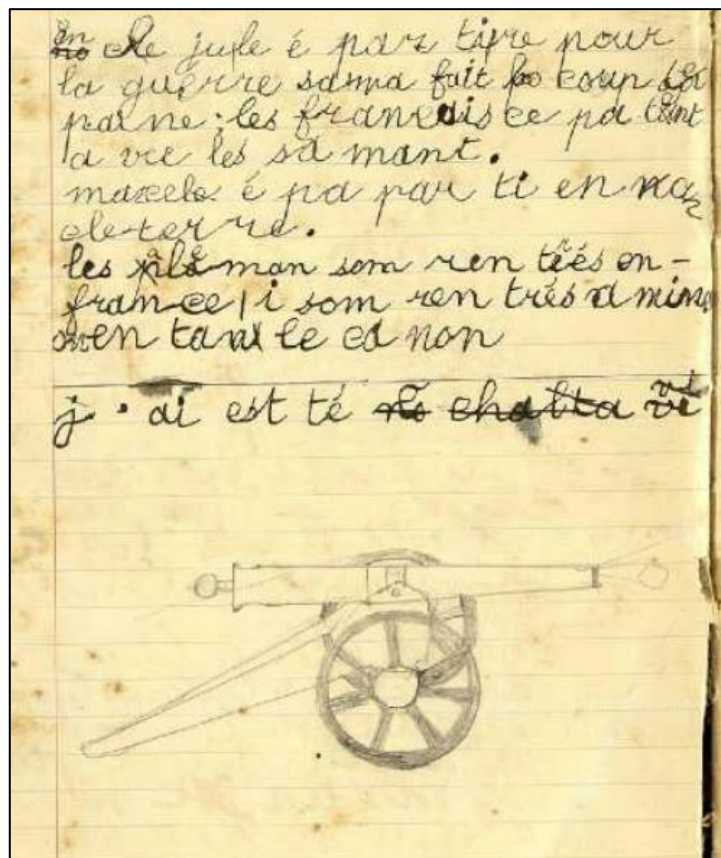 on cle jule é par tire pour
la guérre sama fait bo coup de
paine ; les francais ce pa tent
a vre les sa mant.
marcele é pa par ti en
cleterre.
les alé man som ren trés en-
fran ce i som ren trés a
en tant le ca non
j. ai est té no chalta vi